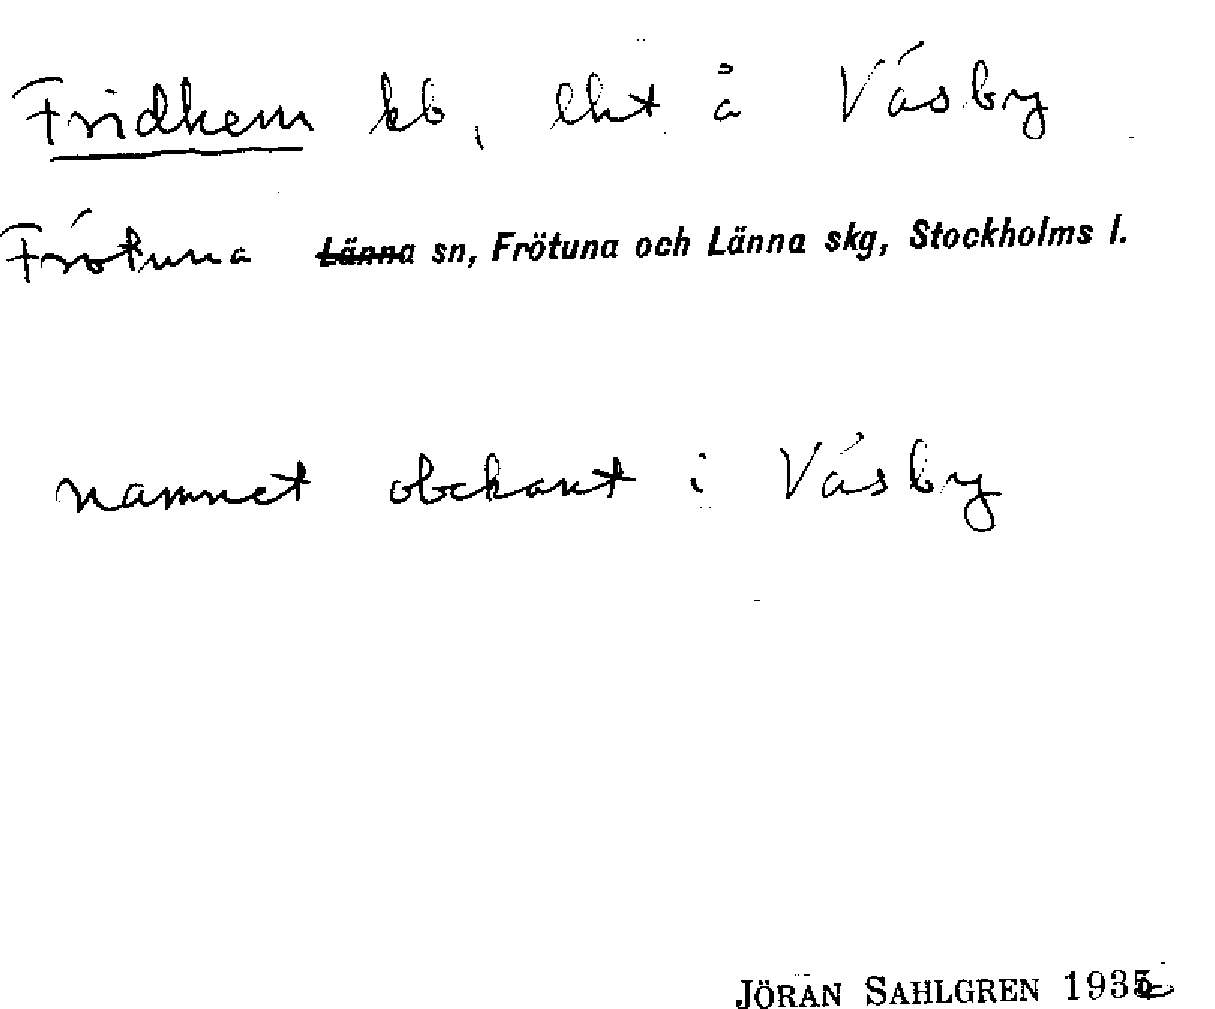 Fridhem kb, lht å Väsby
Frötuna Länna sn, Frötuna och Länna skg, Stockholms l.
namnet obekant i Väsby
JÖRAN SAHLGREN